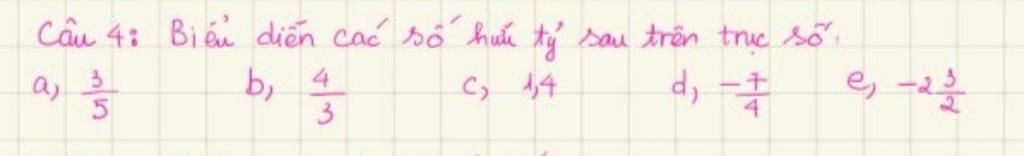 Câu 4: Biểu diễn các số hữu tỷ sau trên trục số.
a, 3/5 b, 4/3 c, 1,4 d, -7/4 e, -2 3/2